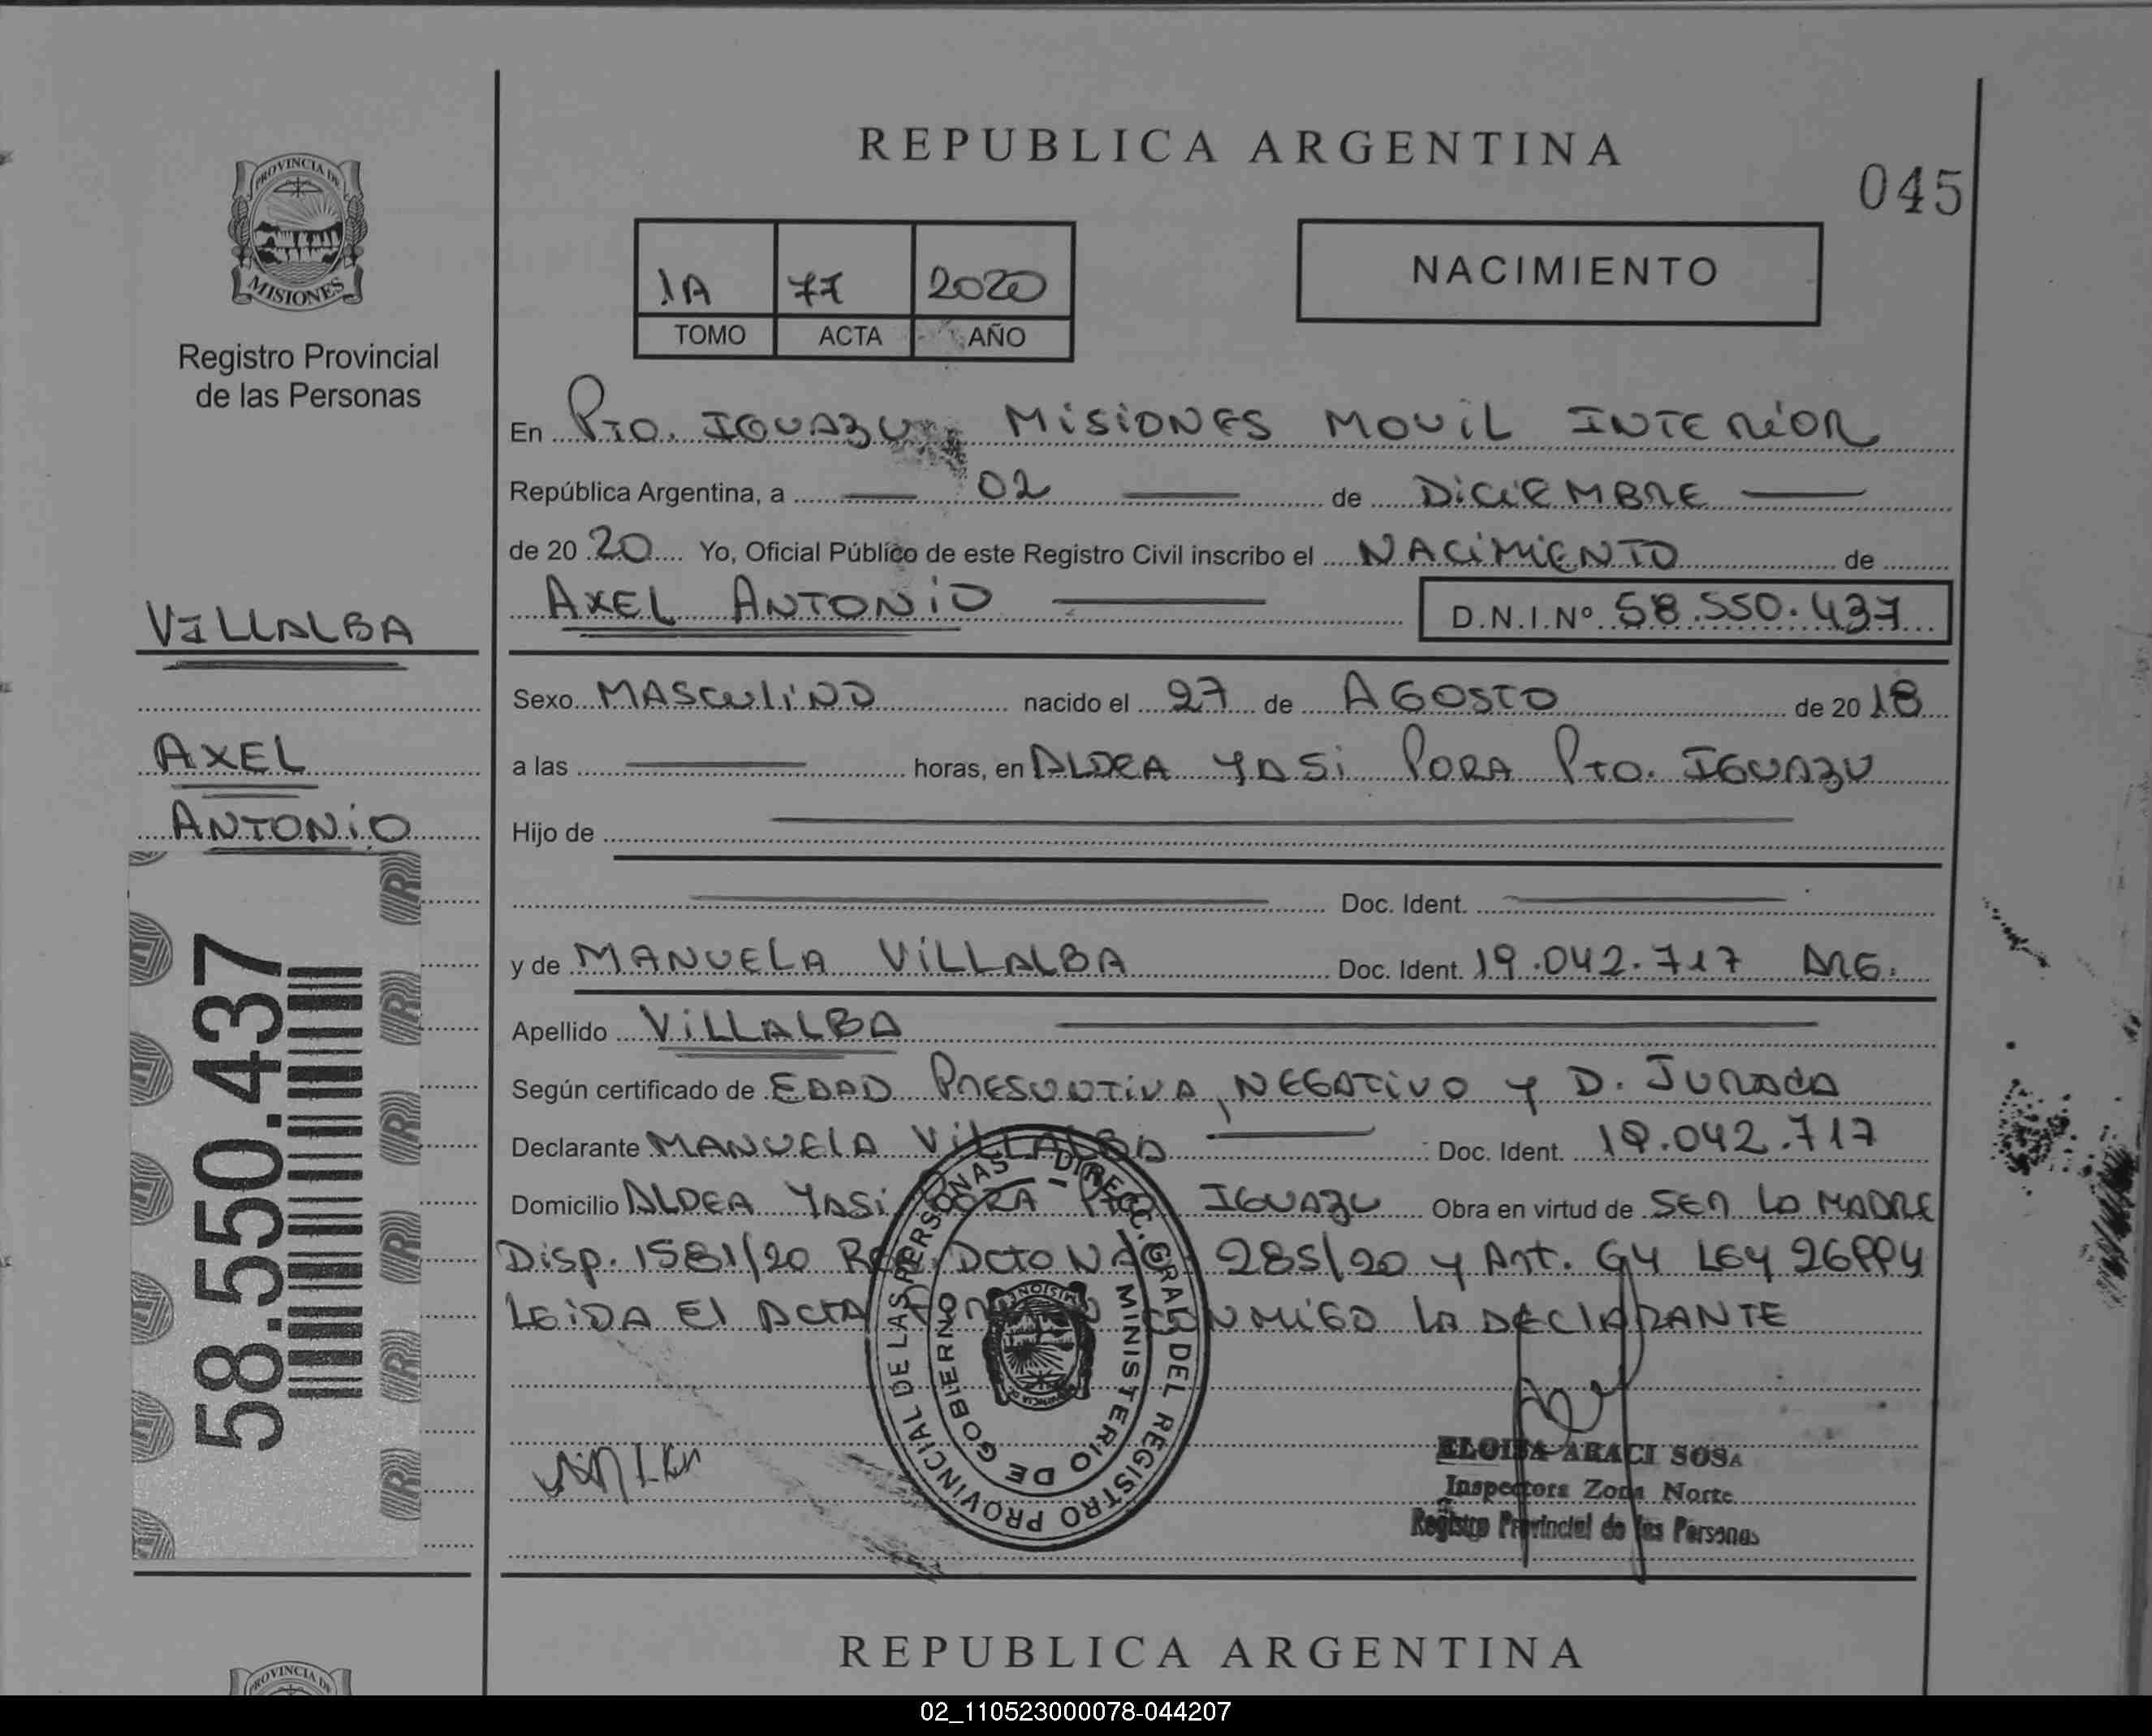 REPUBLICA ARGENTINA
045
PROVINCIA DE
MISIONES
Registro Provincial
de las Personas
1A 77 2020
TOMO ACTA AÑO
NACIMIENTO
En Pto. IGUAZU, MISIONES MOVIL INTERIOR
República Argentina, a 02 de DICIEMBRE
de 20 20 Yo, Oficial Público de este Registro Civil inscribo el NACIMIENTO de
AXEL ANTONIO D.N.I.Nº 58.550.437
VILLALBA
AXEL
ANTONIO
58.550.437
Sexo MASCULINO nacido el 27 de AGOSTO de 20 18
a las horas, en ALDEA YASI PORA Pto. IGUAZU
Hijo de
Doc. Ident.
y de MANUELA VILLALBA Doc. Ident. 19.042.717 ARG.
Apellido VILLALBA
Según certificado de EDAD PRESUNTIVA, NEGATIVO y D. JURADA
Declarante MANUELA VILLALBA Doc. Ident. 19.042.717
Domicilio ALDEA YASI PORA Pto. IGUAZU Obra en virtud de SER LA MADRE
Disp. 1581/20 Dcto NAC 285/20 y Art. LEY 26994
LEIDA El ACTA CONMIGO LA DECLARANTE
DIRECC. GRAL DEL REGISTRO PROVINCIAL DE LAS PERSONAS
MINISTERIO DE GOBIERNO
ELOISA ARACI SOSA
Inspectora Zona Norte
Registro Provincial de las Personas
REPUBLICA ARGENTINA
PROVINCIA DE
02_110523000078-044207